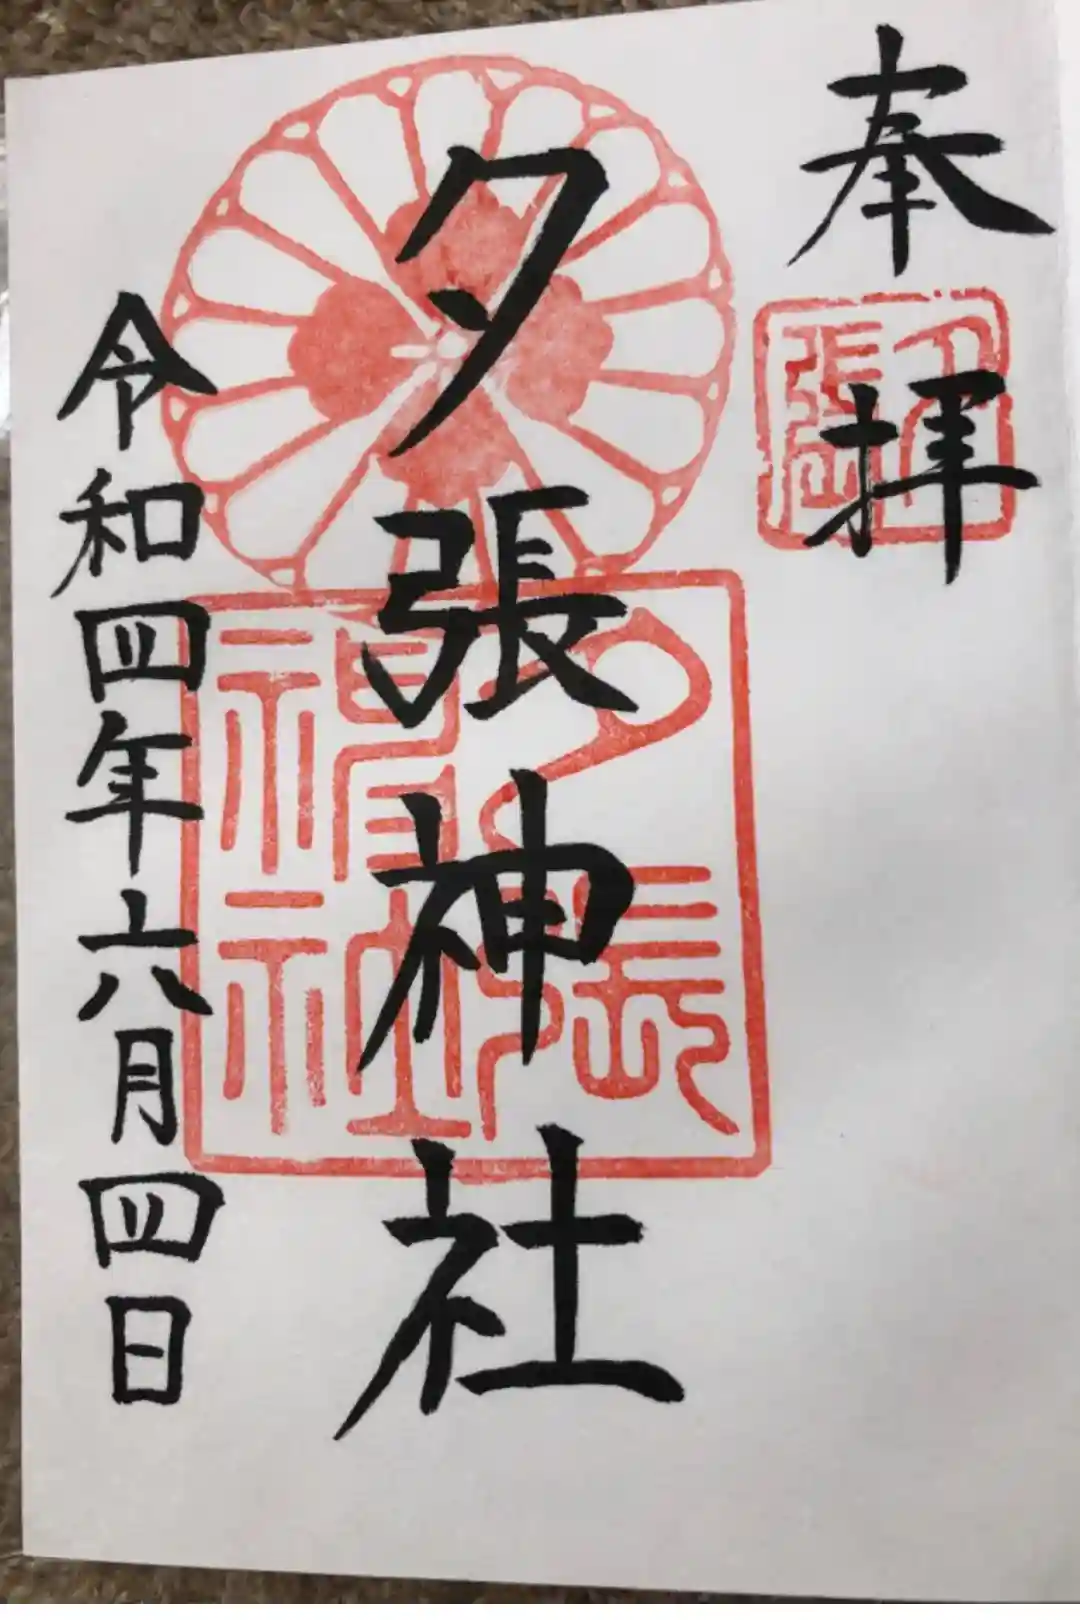 奉拝
夕張
夕張神社
夕張神社
令和四年六月四日